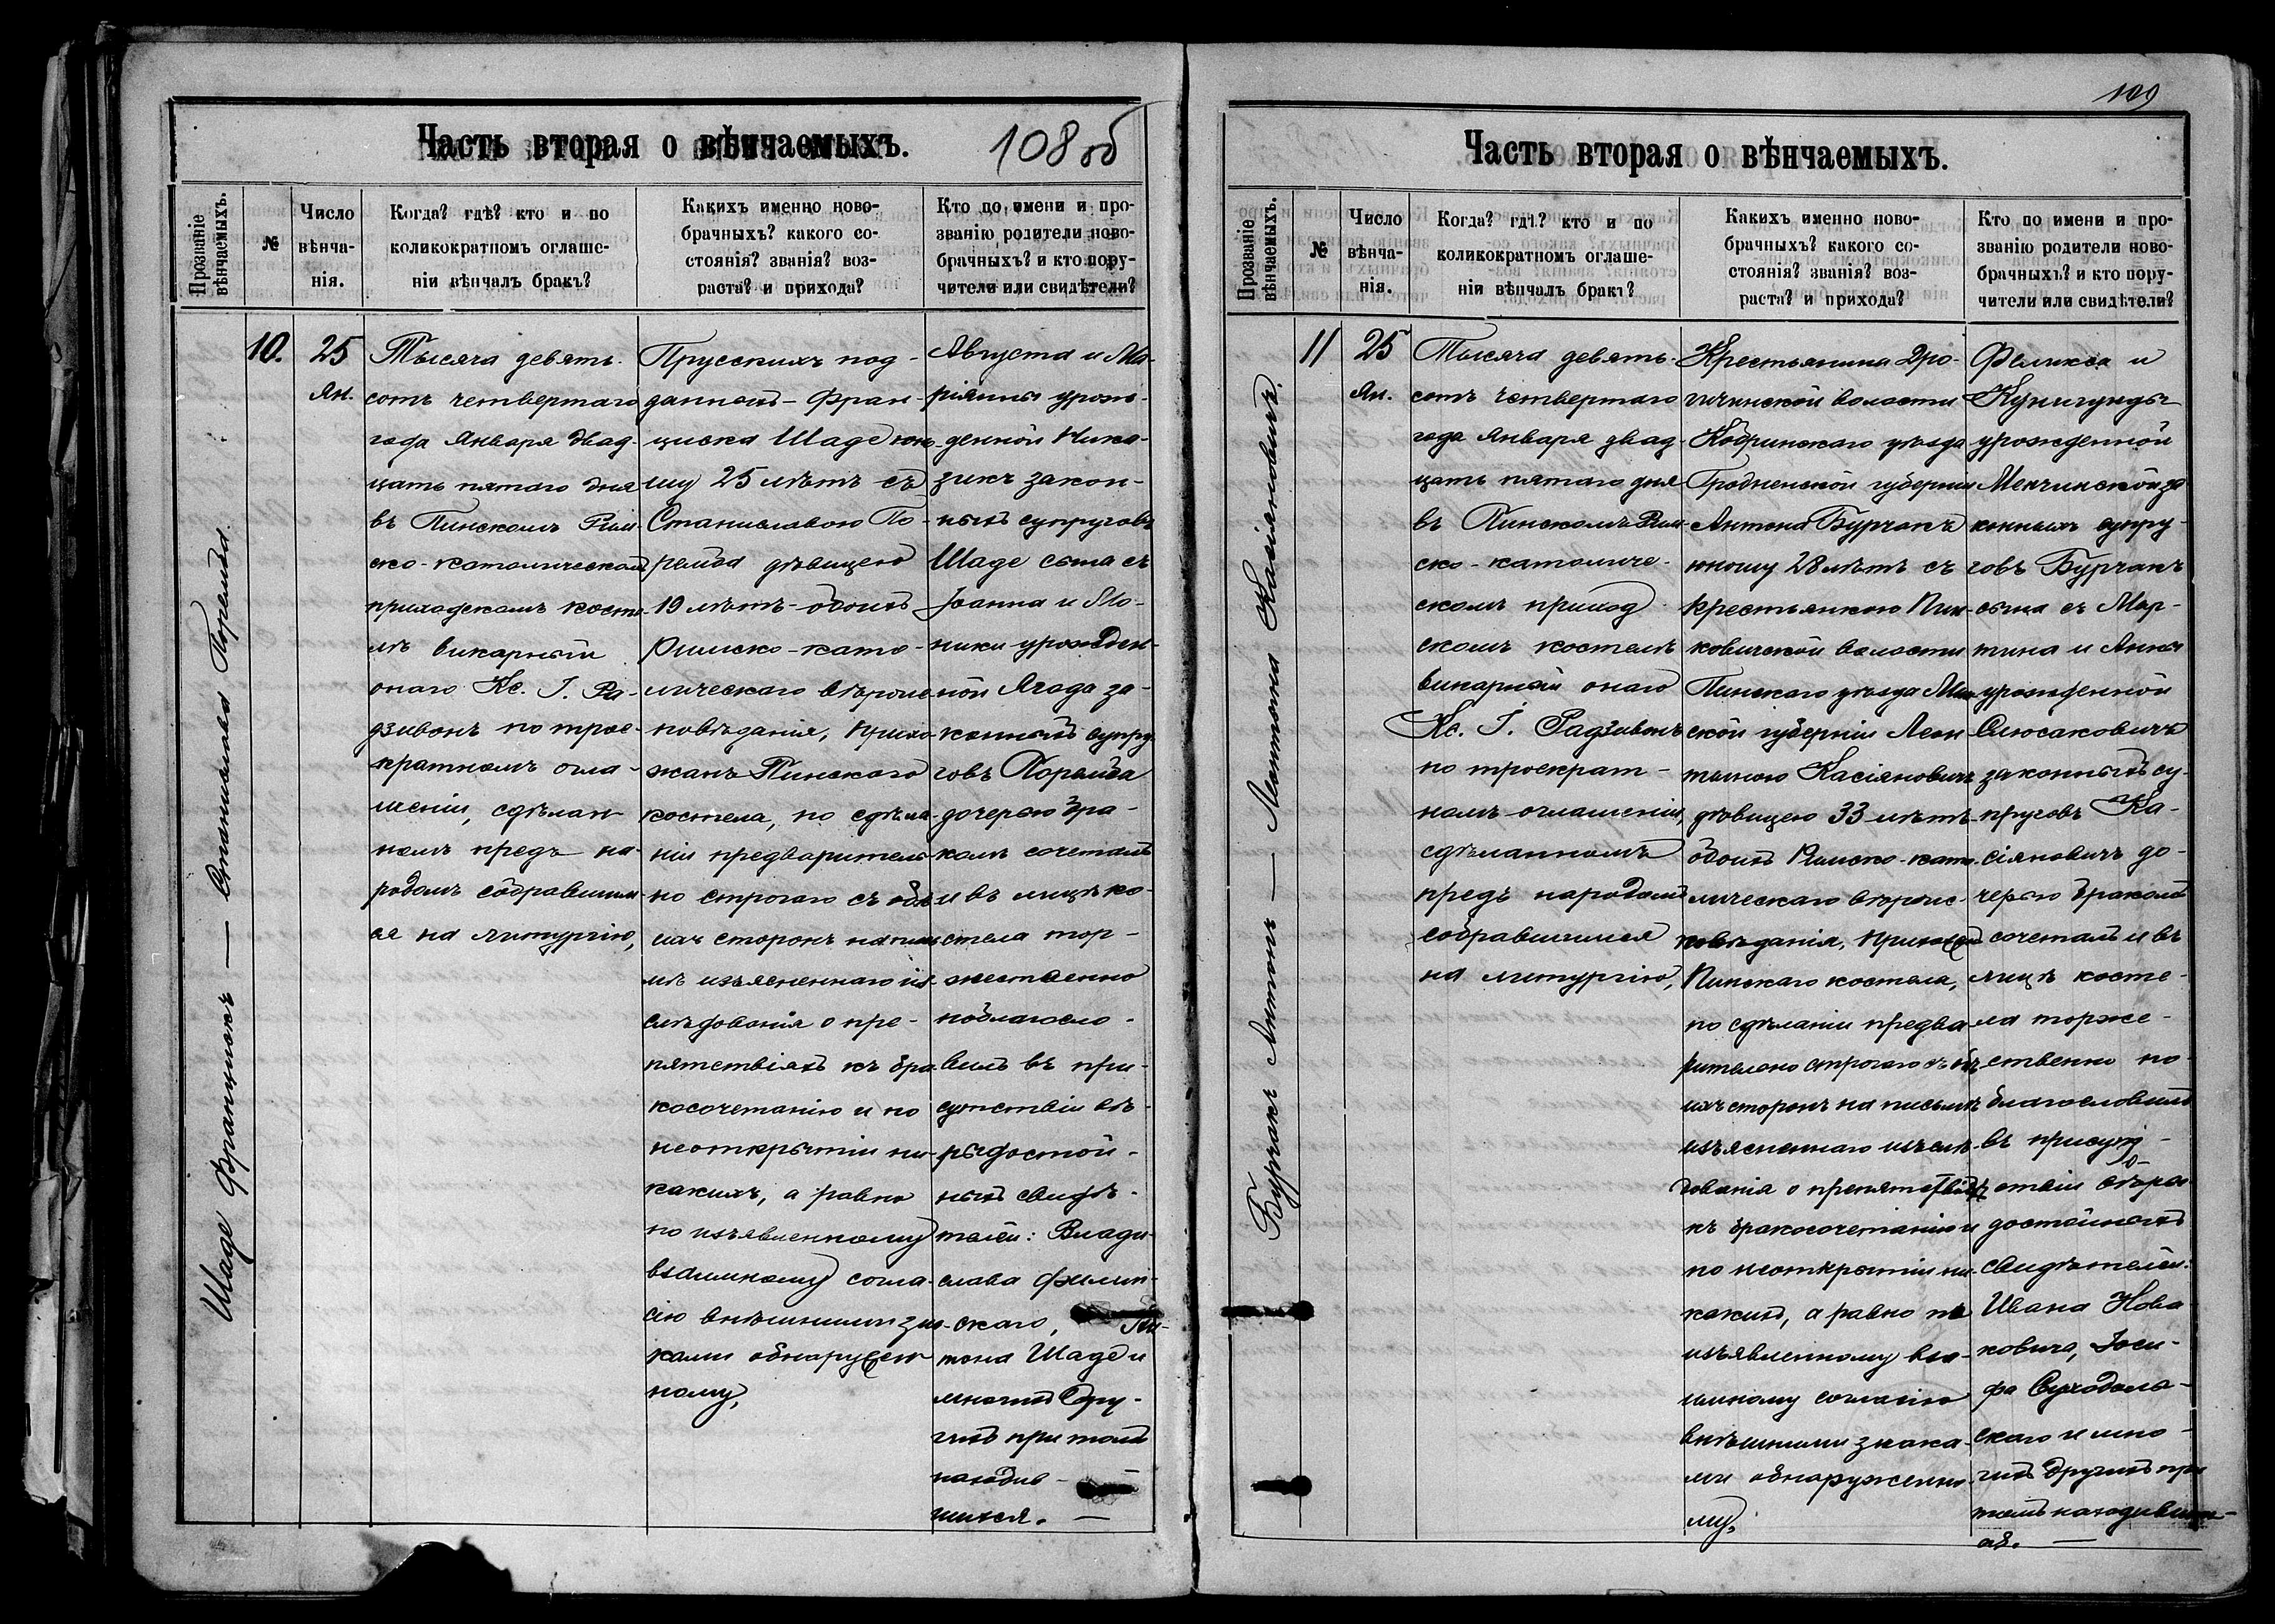 108 об
Часть вторая о вѣнчаемыхъ.
Прозваніе вѣнчаемыхъ.
№
Число вѣнча-
нія.
Когда? гдѣ? кто и по
коликократномъ оглаше-
ніи вѣнчалъ бракъ?
Какихъ именно ново-
брачныхъ? какого со-
стоянія? званія? воз-
раста? и прихода?
Кто по имени и про-
званію родители ново-
брачныхъ? и кто пору-
чители или свидѣтели?
Шаде Францишекъ — Станислава Порейда.
10.
25
Ян.
Тысяча девять-
сотъ четвертаго
года Января двад-
цать пятаго дня
въ Пинскомъ Рим-
ско-католическомъ
приходскомъ косте-
лѣ викарный
онаго Кс. І. Ра-
дзивонъ по трое-
кратномъ огла-
шеніи, сдѣлан-
номъ предъ на-
родомъ собравшим-
ся на литургію,
Прусскихъ под-
данныхъ - Фран-
циска Шаде юно-
шу 25 лѣтъ съ
Станиславою По-
рейда дѣвицею
19 лѣтъ - обоихъ
Римско-като-
лическаго вѣроис-
повѣданія, прихо-
жанъ Пинскаго
костела, по сдѣла-
ніи предваритель-
но строгаго съ обѣ-
ихъ сторонъ на пись-
мѣ изъясненнаго из-
слѣдованія о пре-
пятствіяхъ къ бра-
косочетанію и по
неоткрытіи ни-
какихъ, а равно
по изъявленному
взаимному согла-
сію внѣшними зна-
ками обнаружен-
ному,
Августа и Ма-
ріянны урож-
денной Нико-
зикъ закон-
ныхъ супруговъ
Шаде сына съ
Іоанна и Мо-
ники урожден-
ной Ягода за-
конныхъ супру-
говъ Порейда
дочерью бра-
комъ сочеталъ
и въ лицѣ ко-
стела тор-
жественно
поблагосло-
вилъ въ при-
сутствіи вѣ-
рыдостой-
ныхъ свидѣ-
телей: Влади-
слава Филип-
скаго, Ан-
тона Шаде и
многихъ дру-
гихъ при томъ
находив-
шихся. —
109
Часть вторая о вѣнчаемыхъ.
Прозваніе вѣнчаемыхъ.
№
Число вѣнча-
нія.
Когда? гдѣ? кто и по
коликократномъ оглаше-
ніи вѣнчалъ бракъ?
Какихъ именно ново-
брачныхъ? какого со-
стоянія? званія? воз-
раста? и прихода?
Кто по имени и про-
званію родители ново-
брачныхъ? и кто пору-
чители или свидѣтели?
Бурчакъ Антонъ — Леонтина Касіяновичъ.
11
25
Ян.
Тысяча девять-
сотъ четвертаго
года Января двад-
цать пятаго дня
въ Пинскомъ Рим-
ско-католиче-
скомъ приход-
скомъ костелѣ
викарный онаго
Кс. І. Радзивонъ
по троекрат-
номъ оглашеніи,
сдѣланномъ
предъ народомъ
собравшимся
на литургію,
Крестьянина Дро-
гичинской волости
Кобринскаго уѣзда
Гродненской губерніи
Антона Бурчакъ
юношу 28 лѣтъ съ
крестьянкою Пин-
ковичской волости
Пинскаго уѣзда Мин-
ской губерніи Леон-
тиною Касіяновичъ
дѣвицею 33 лѣтъ
обоихъ Римско-като-
лическаго вѣроис-
повѣданія, прихожанъ
Пинскаго костела,
по сдѣланіи предва-
рительно строгаго съ обѣ-
ихъ сторонъ на письмѣ
изъясненнаго изслѣ-
дованія о препятствіяхъ
къ бракосочетанію и
по неоткрытіи ни-
какихъ, а равно по
изъявленному вза-
имному согласію
внѣшними знака-
ми обнаруженно-
му,
Феликса и
Кунигунды
урожденной
Менчинской за-
конныхъ супру-
говъ Бурчакъ
сына съ Мар-
тина и Анны
урожденной
Слюсаковичъ
законныхъ су-
пруговъ Ка-
сіяновичъ до-
черью бракомъ
сочеталъ и въ
лицѣ косте-
ла торже-
ственно по-
благословилъ
въ присут-
ствіи вѣро-
достойныхъ
свидѣтелей:
Ивана Нова-
ковича, Іоси-
фа Суходоль-
скаго и мно-
гихъ другихъ при
томъ находивших-
ся. —